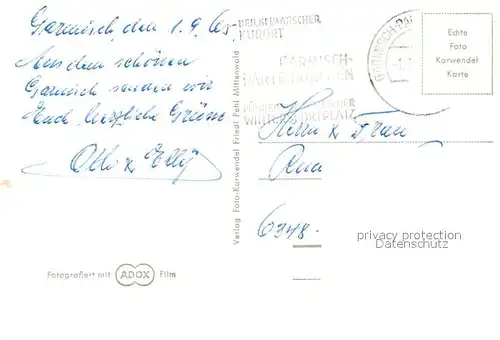 Garmisch, den 1.9.65-
Aus dem schönen
Garmisch senden wir
Euch herzliche Grüsse
Otto u. Elly
Fotografiert mit ADOX Film
Verlag Foto-Karwendel Friedl Pehl Mittenwald
HEILKLIMATISCHER
KURORT
GARMISCH-
PARTENKIRCHEN
WINTERSPORTPLATZ
GARMISCH-PA
Echte
Foto
Karwendel
Karte
Herrn u. Frau
6348.
privacy protection
Datenschutz